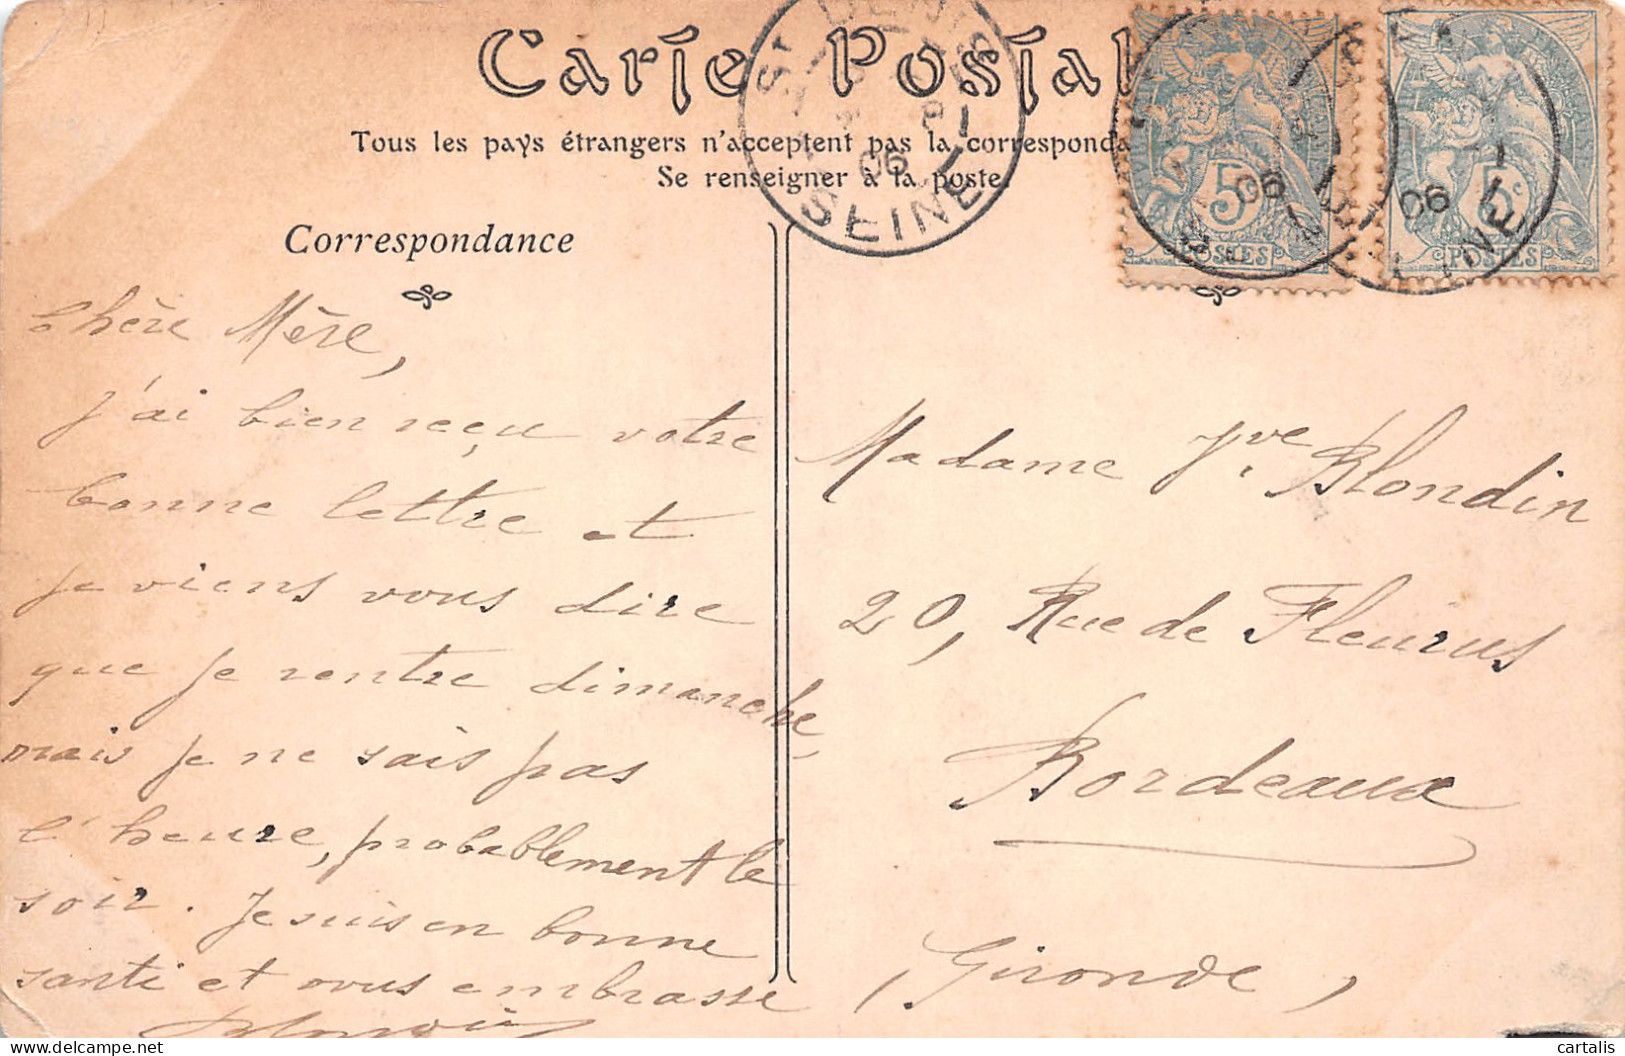 Carte Postal
Tous les pays étrangers n'acceptent pas la correspond
Se renseigner à la poste
ST DENIS
06
SEINE
5c
POSTES
06
5c
POSTES
06
Correspondance
Chère Mère,
j'ai bien reçu votre
bonne lettre et
je viens vous dire
que je rentre dimanche,
mais je ne sais pas
l'heure, probablement le
soir. Je suis en bonne
santé et vous embrasse
Madame Vve Blondin
20, Rue de Fleurus
Bordeaux
(Gironde)
cartalis